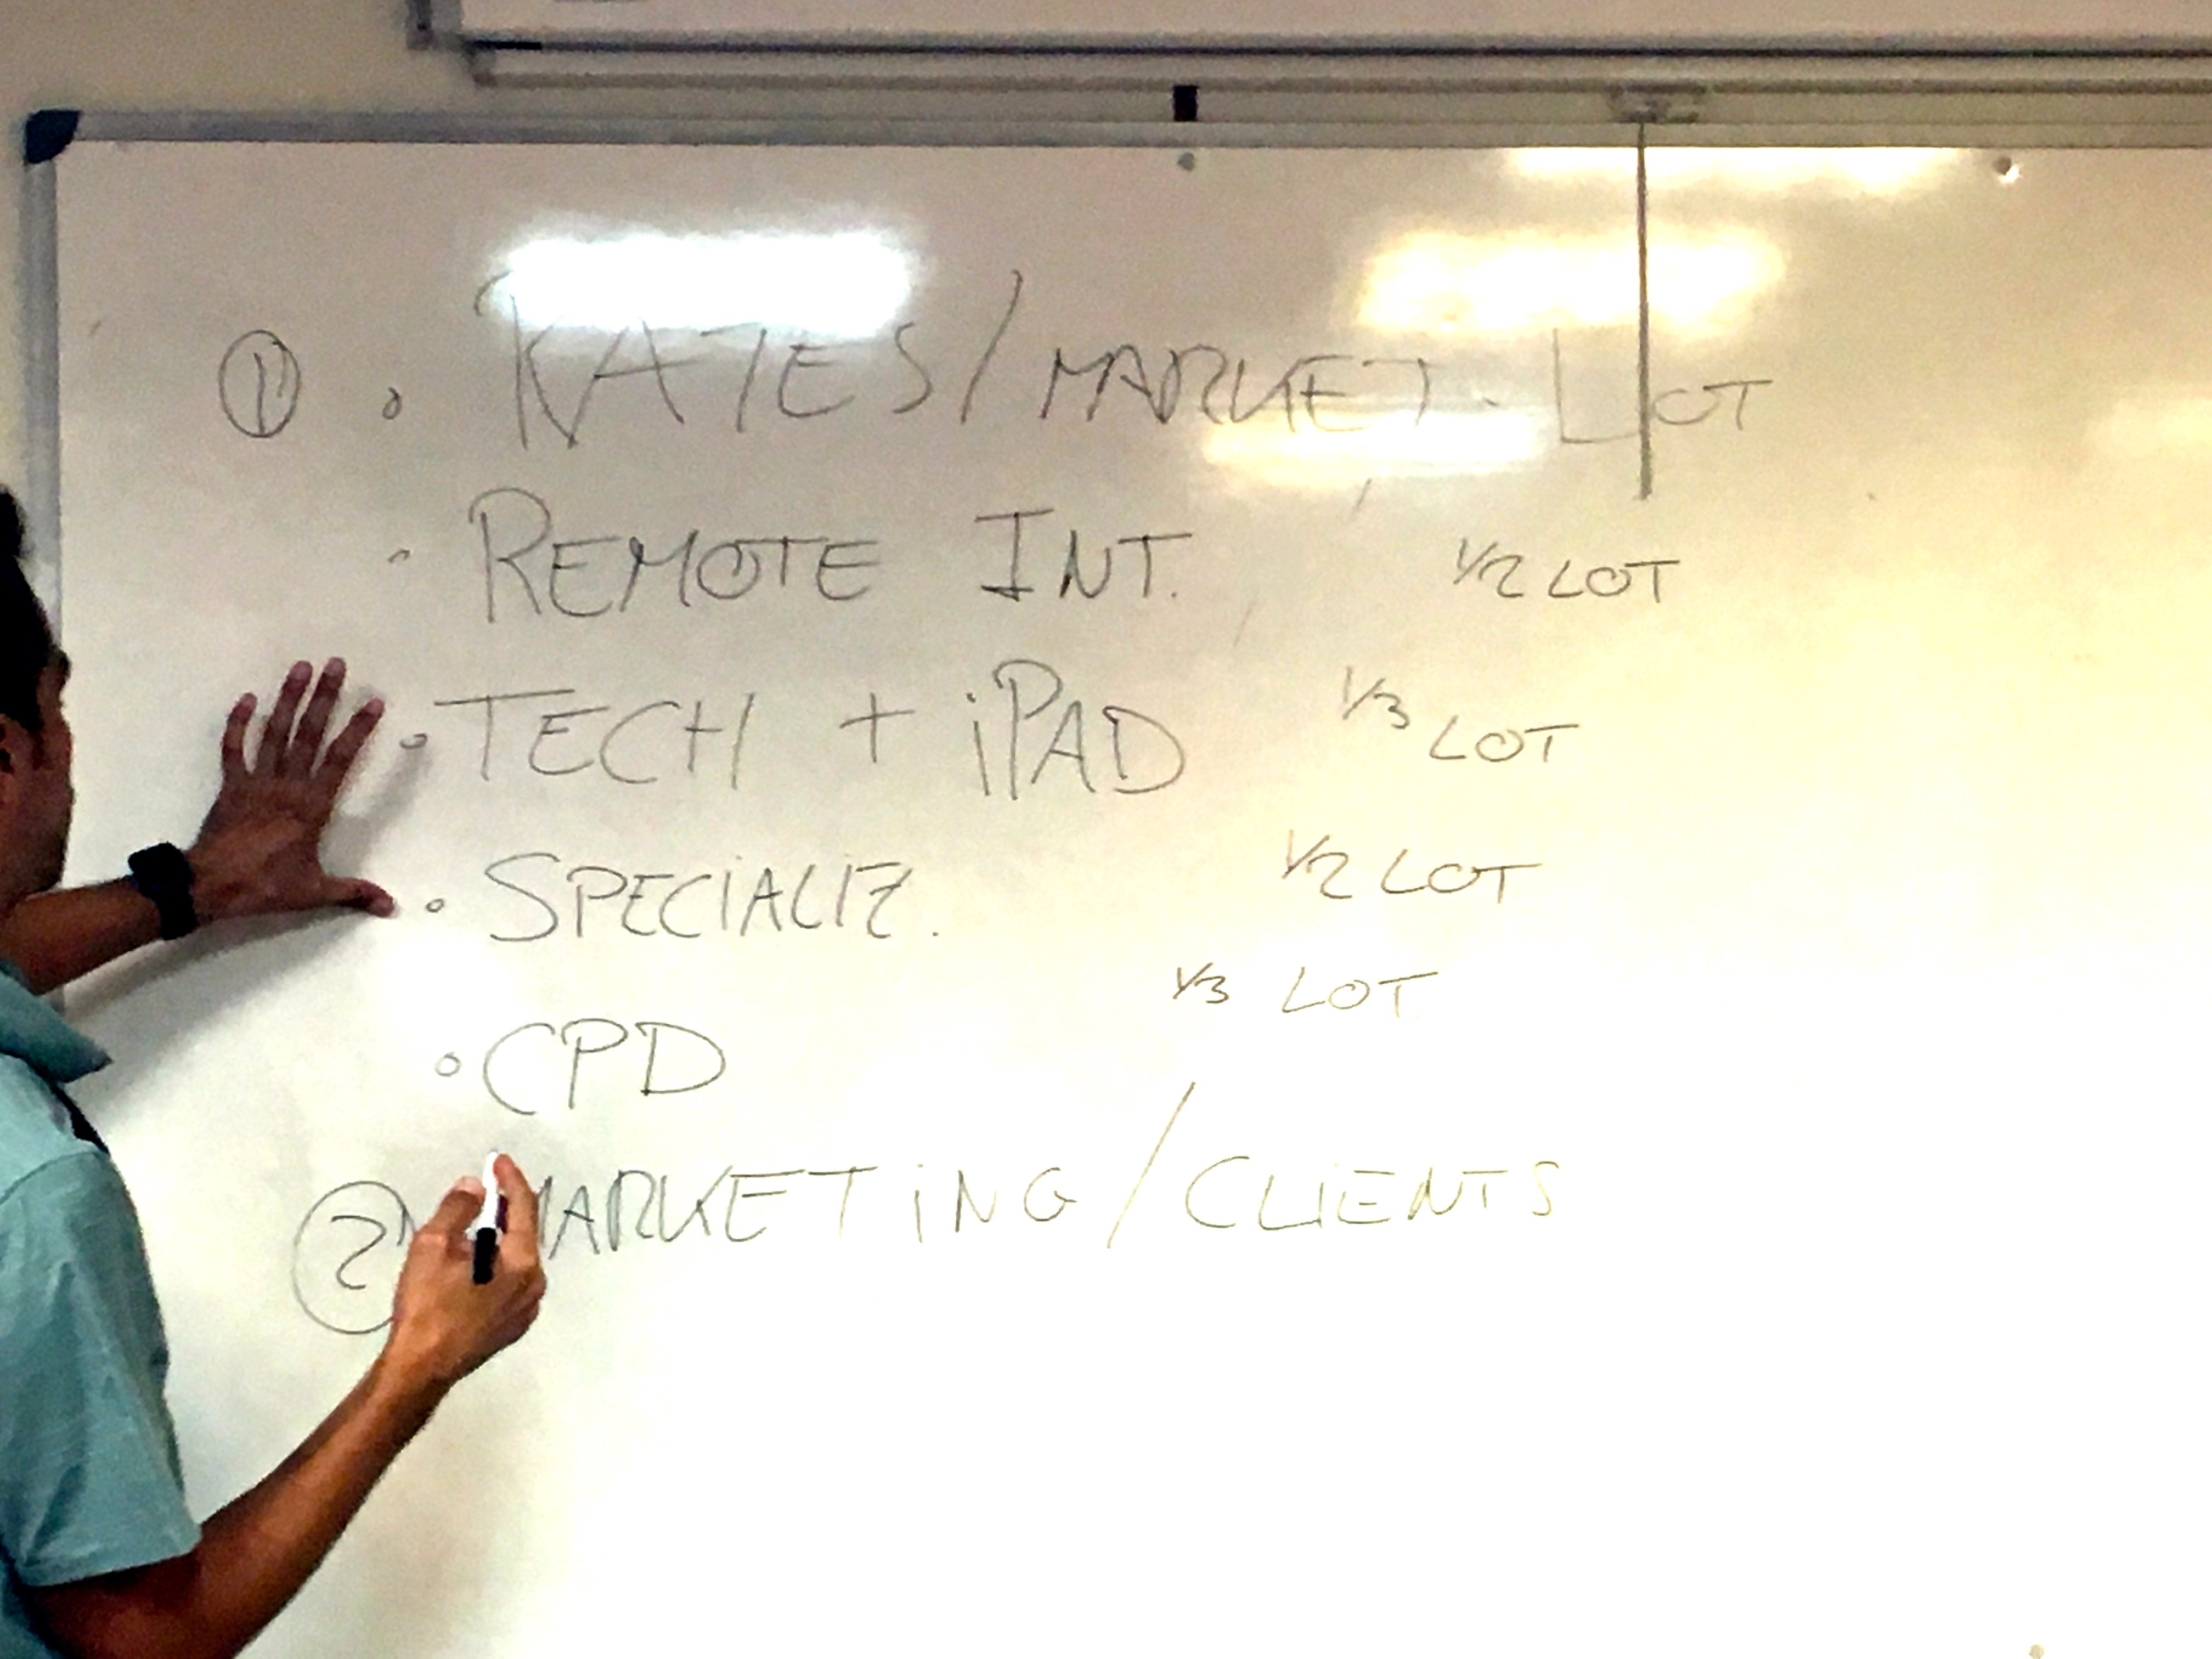 ① • RATES/MARKET. LOT
• REMOTE INT. 1/2 LOT
• TECH + iPAD 1/3 LOT
• SPECIALIZ. 1/2 LOT
1/3 LOT
• CPD
② MARKETING/CLIENTS